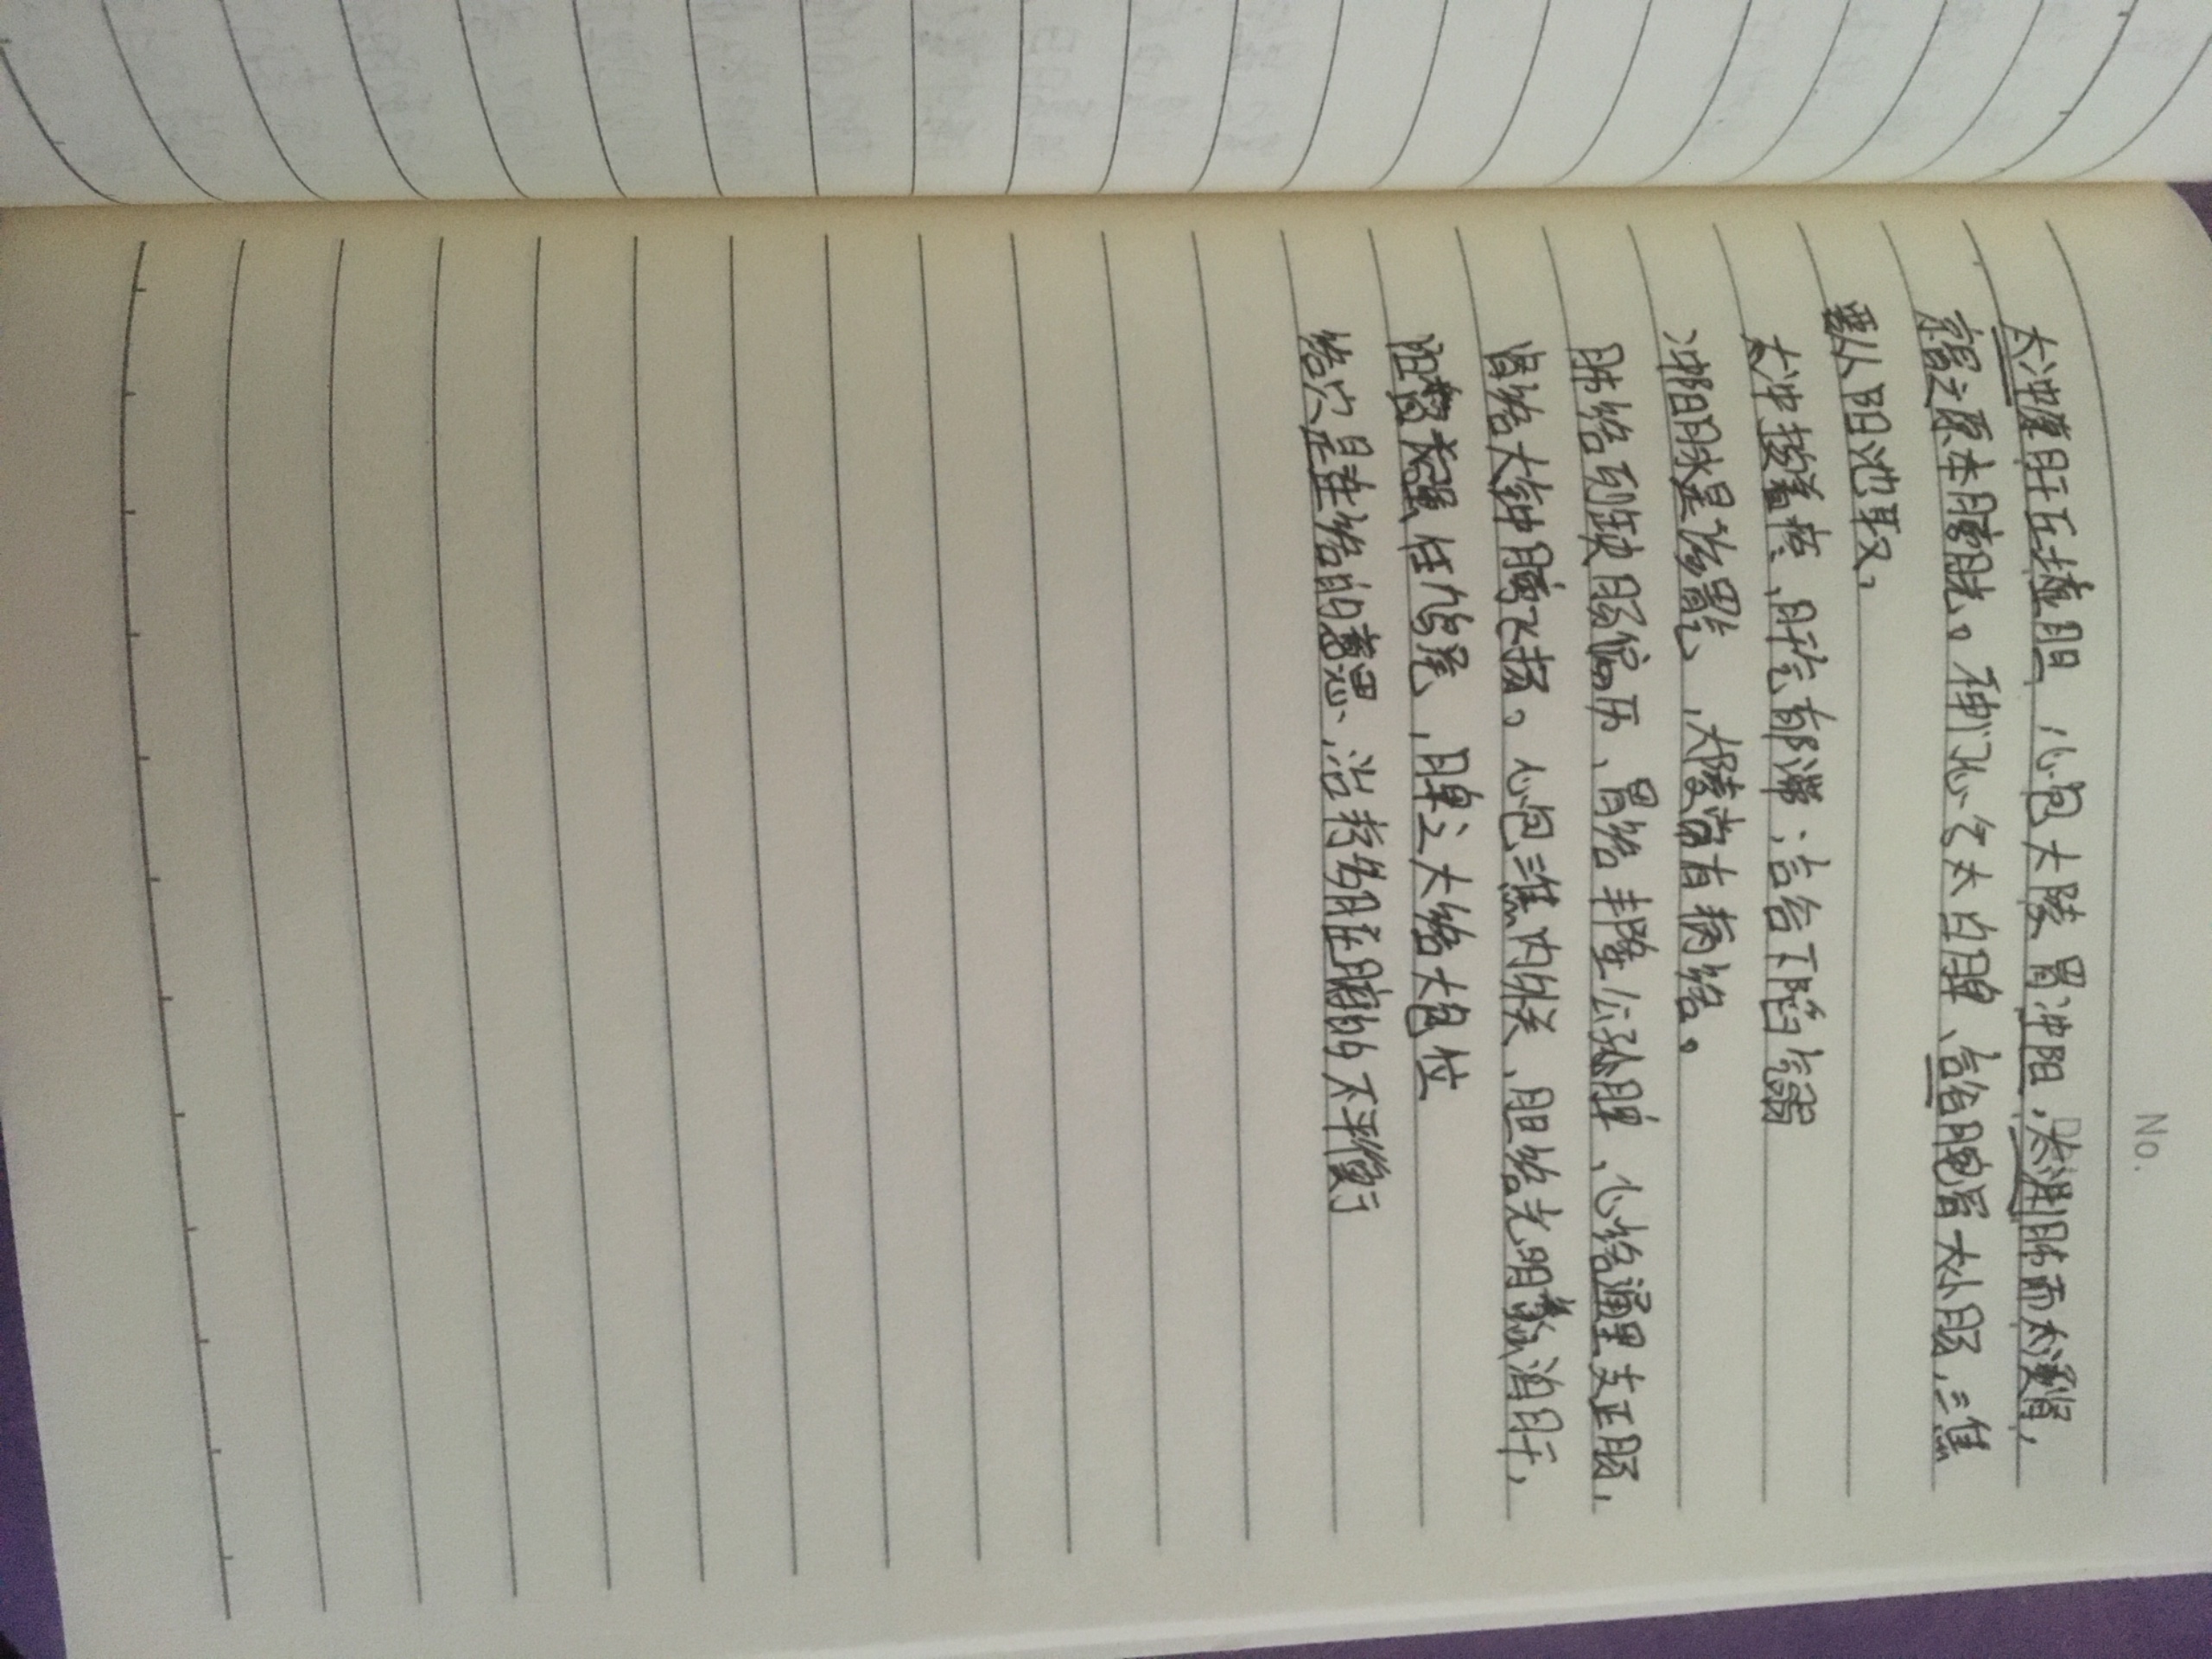 No.
太冲原肝丘墟胆，心包大陵胃冲阳，太渊肺而太溪肾，
京骨之原本膀胱。神门心兮太白脾、合谷腕骨大小肠，三焦
要从阳池取，
太冲按着疼、肝经有郁滞；合谷下陷气弱
冲阳脉是沩胃气、大陵常有病络。
肺络列缺肠偏历、胃络丰隆公孙脾、心络通里支正肠，
肾络大钟膀飞扬。心包三焦内外关、胆络光明蠡沟肝，
阳督长强任鸠尾、脾之大络大包位
络穴是连络的意思、治疗络脏腑的不平衡